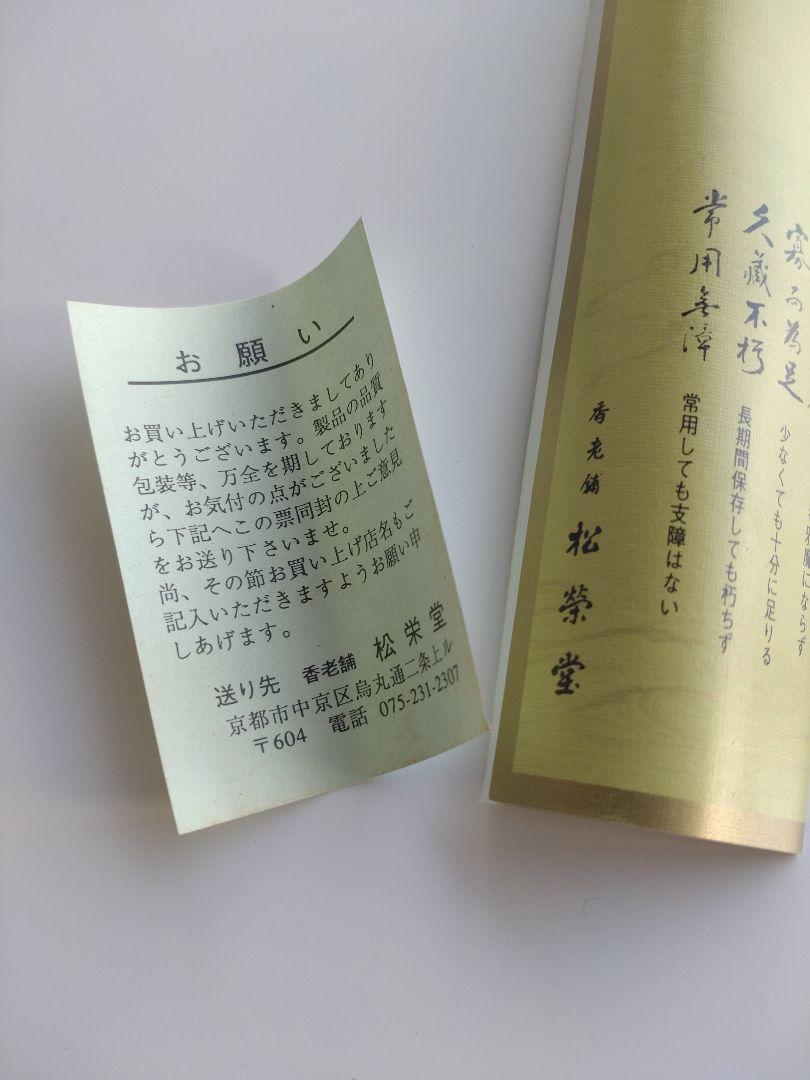 お願い
お買い上げいただきましてあり
がとうございます。製品の品質
包装等、万全を期しております
が、お気付の点がございました
ら下記へこの票同封の上ご意見
をお送り下さいませ。
尚、その節お買い上げ店名もご
記入いただきますようお願い申
しあげます。
送り先 香老舗 松栄堂
京都市中京区烏丸通二条上ル
〒604 電話 075-231-2307
邪魔にならず
寡而為足
少なくても十分に足りる
久蔵不朽
長期間保存しても朽ちず
常用無障
常用しても支障はない
香老舗 松榮堂